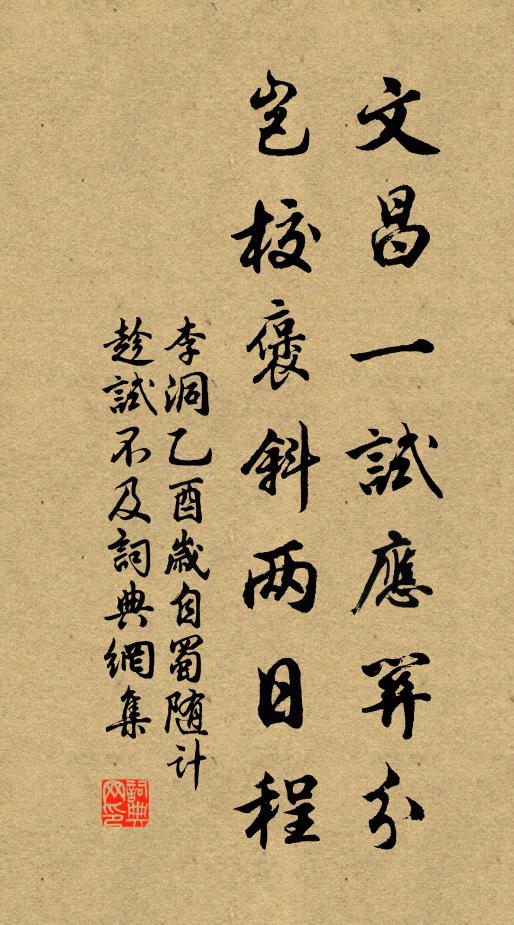 文昌一試應關分
豈校褒斜两日程
李洞乙酉歲自蜀随計
趁試不及詞典網集
詞典
网印